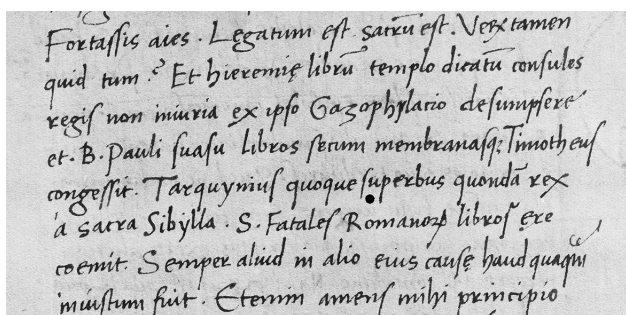 Fortassis aies. Legatum est. sacrũ est. Veꝝtamen
quid tum? Et hieremię librũ templo dicatũ consules
regis non iniuria ex ipso Gazophylacio desumpsere
et. B. Pauli suasu libros secum membranasqꝫ Timotheus
congessit. Tarquynius quoque superbus quondã rex
á sacra Sibylla. S. Fatales Romanoꝝ libros ęre
coemit. Semper aliud in alio eius causę haud quaqũ
iniustum fuit. Etenim amens mihi principio